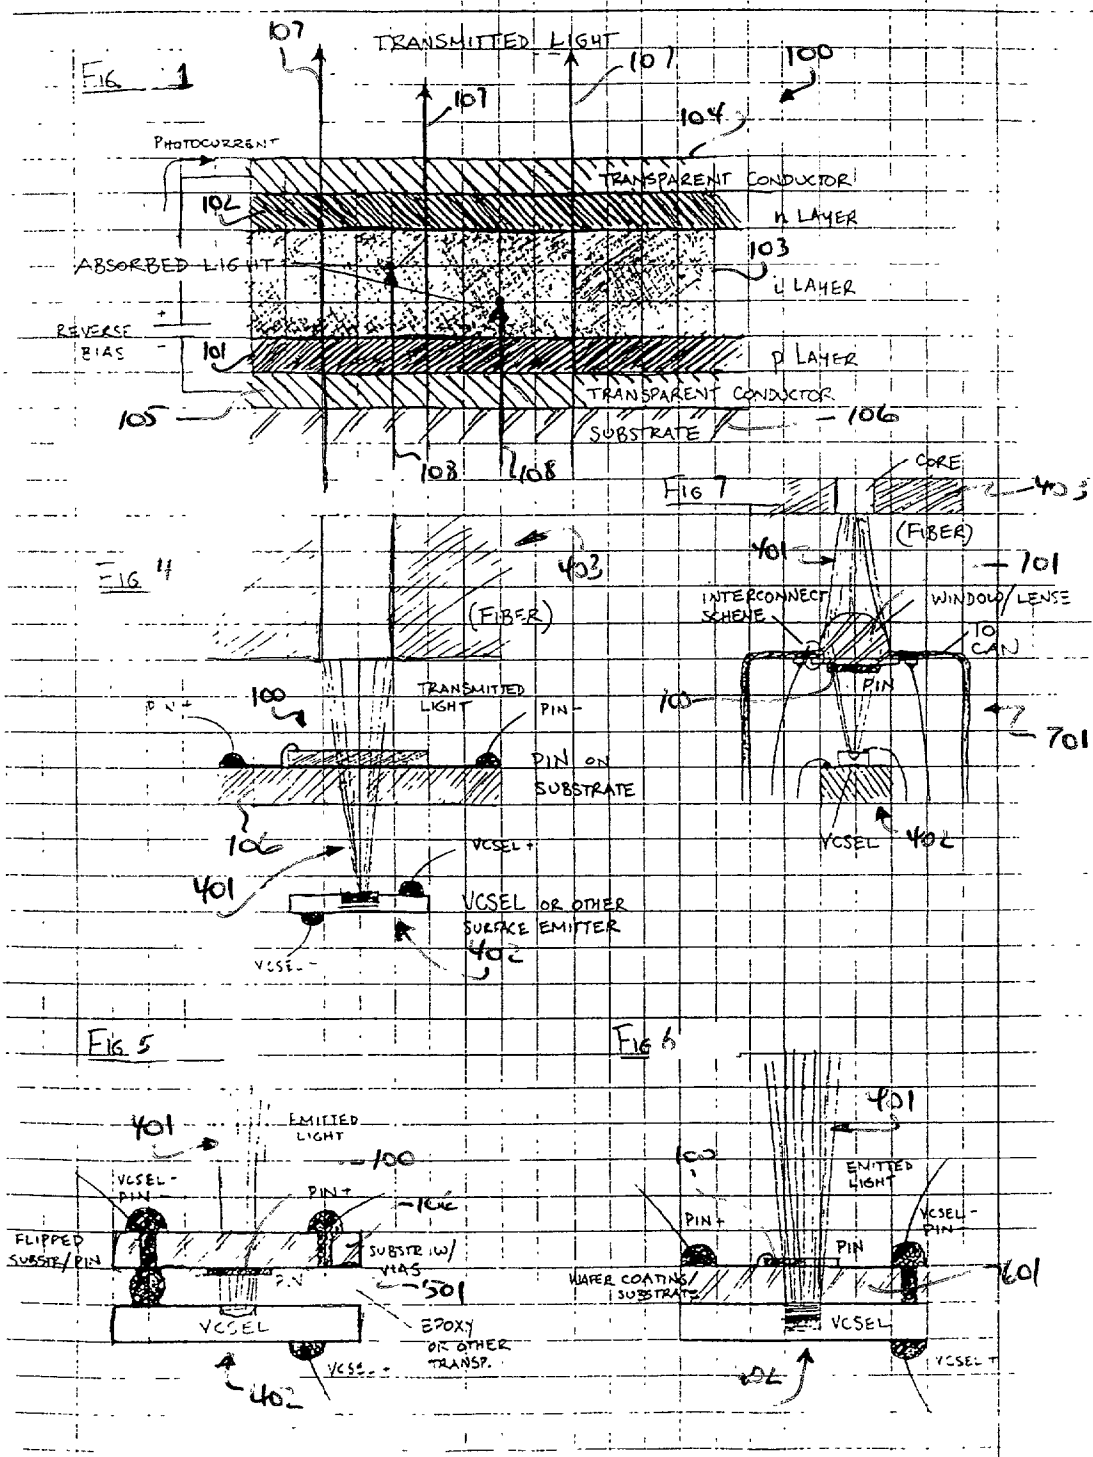 107
TRANSMITTED LIGHT
107
100
FIG 1
107
104
PHOTOCURRENT
TRANSPARENT CONDUCTOR
102
n LAYER
103
ABSORBED LIGHT
i LAYER
+
REVERSE
BIAS
-
101
p LAYER
TRANSPARENT CONDUCTOR
105
106
SUBSTRATE
108
108
FIG 4
403
(FIBER)
TRANSMITTED
LIGHT
100
PIN+
PIN-
PIN ON
SUBSTRATE
106
VCSEL+
401
VCSEL OR OTHER
SURFACE EMITTER
402
VCSEL-
FIG 7
CORE
403
(FIBER)
401
701
INTERCONNECT
SCHEME
WINDOW/LENSE
TO
CAN
PIN
100
701
VCSEL
402
FIG 5
401
EMITTED
LIGHT
100
VCSEL-
PIN-
PIN+
106
FLIPPED
SUBSTR/PIN
SUBSTR W/
VIAS
PIN
501
VCSEL
EPOXY
OR OTHER
TRANSP.
VCSEL+
402
FIG 6
401
100
EMITTED
LIGHT
PIN+
VCSEL-
PIN-
PIN
WAFER COATING/
SUBSTRATE
601
VCSEL
VCSEL+